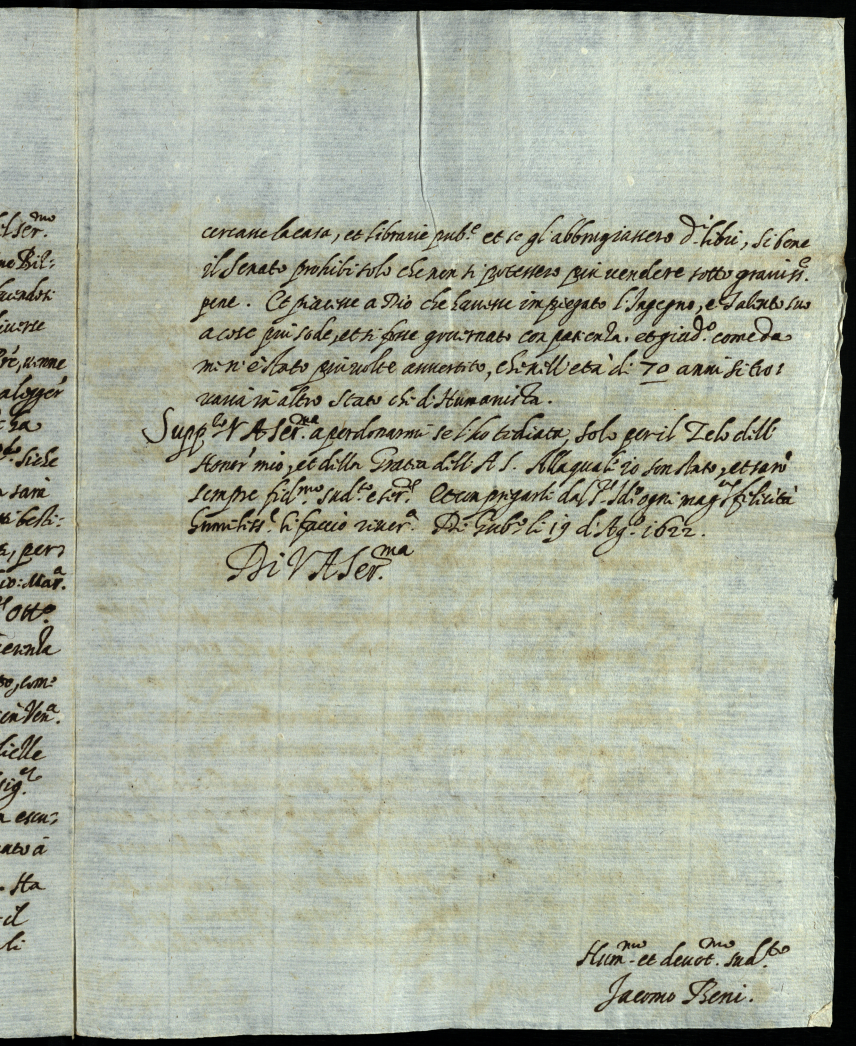 el Ser.mo
ne Bil:
iuerse
Pre, uenne
alogger
cha
siche
sarà
ti besti:
, per
io: Mar.a
Otto
to, com:
in Ven.a
sig.
escu:
ato à
Ha
il
li
cercasse la casa, et librarie pub.e et se gl'abbrugiassero d.i libri, sibene
il Senato prohibi solo che non si potessero piu vendere sotto grauiss.e
pene. Et piacesse a Dio che hauesse impiegato l'Ingegno, e Talento suo
a cose piu sode, et si fosse gouernato con patienza, et giud.o come da
me n'è stato piu volte auuertito, che nell'età di 70 anni si tro:
uaria in altro stato che di Humanista.
Supp.co V A Ser.ma a perdonarmi se l'ho tediata, solo per il Zelo dell'
Honor mio, et della Gratia dell'A S. Alla quale io son stato, et sarò
sempre fid.mo sud.to e ser.e Et con pregarli dal S. Idio ogni mag.r felicità
humiliss.e li faccio riuer.a Di Gub.o li 19 d'Ag.o 1622.
Di V A Ser.ma
Hum.mo et deuot.mo sud.to
Jacomo Beni.